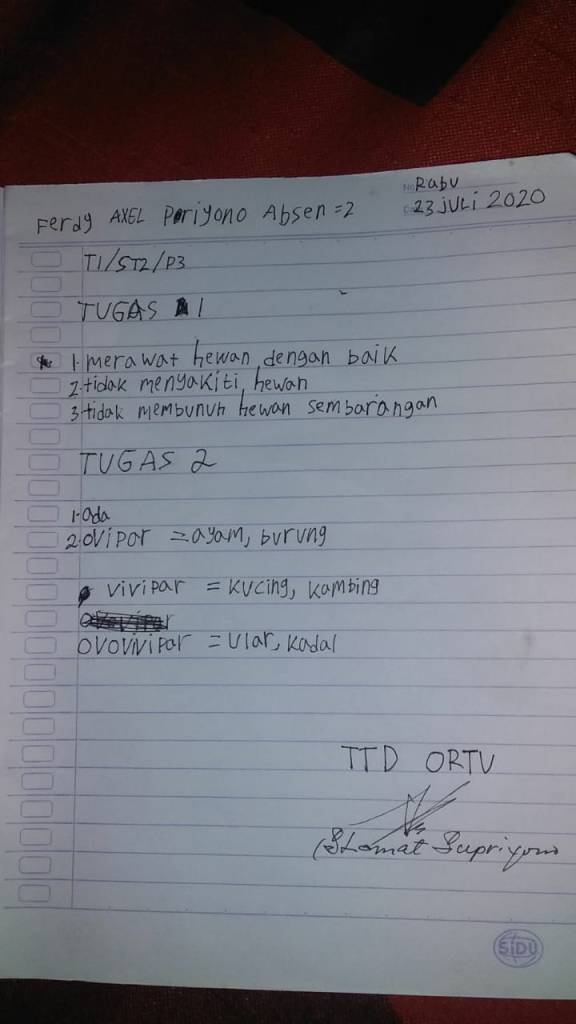 No Rabu
Ferdy AXEL Poriyono Absen =2
23 JULI 2020
T1/ST2/P3
TUGAS 1
1. merawat hewan dengan baik
2. tidak menyakiti hewan
3 tidak membunuh hewan sembarangan
TUGAS 2
1. Ada
2. OViPar = ayam, burung
ViViPar = Kucing, Kambing
OVOViViPar = Ular, Kadal
TTD ORTU
(Slamat Supriyono
SiDU